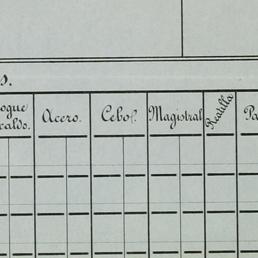 s.
ogue
caldo.
Acero.
Cebol.
Magistral
Reatilla
Pa